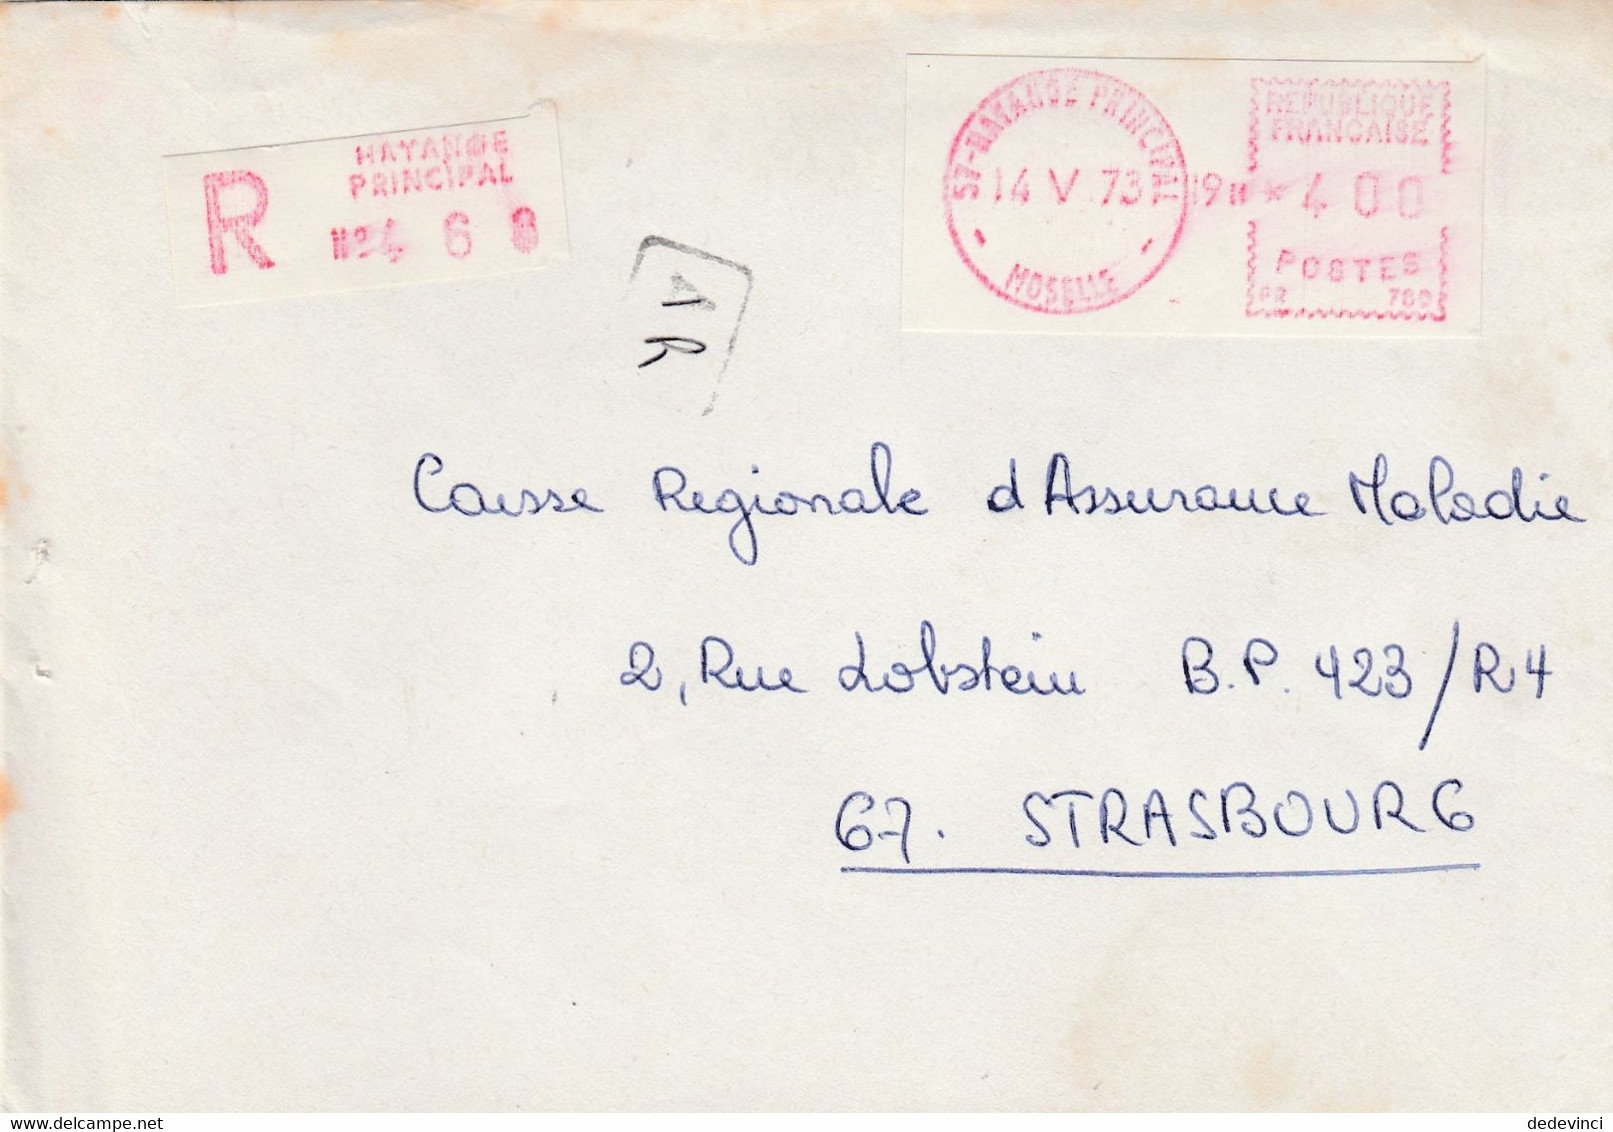 HAYANGE
PRINCIPAL
R
N° 4 6 8
57-HAYANGE PRINCIPAL
14 V. 73 19H
MOSELLE
REPUBLIQUE
FRANCAISE
* 4 00
POSTES
PR 780
A R
Caisse Regionale d'Assurance Maladie
2, Rue Lobstein B.P. 423/R4
67. STRASBOURG
delcampe.net
dedevinci